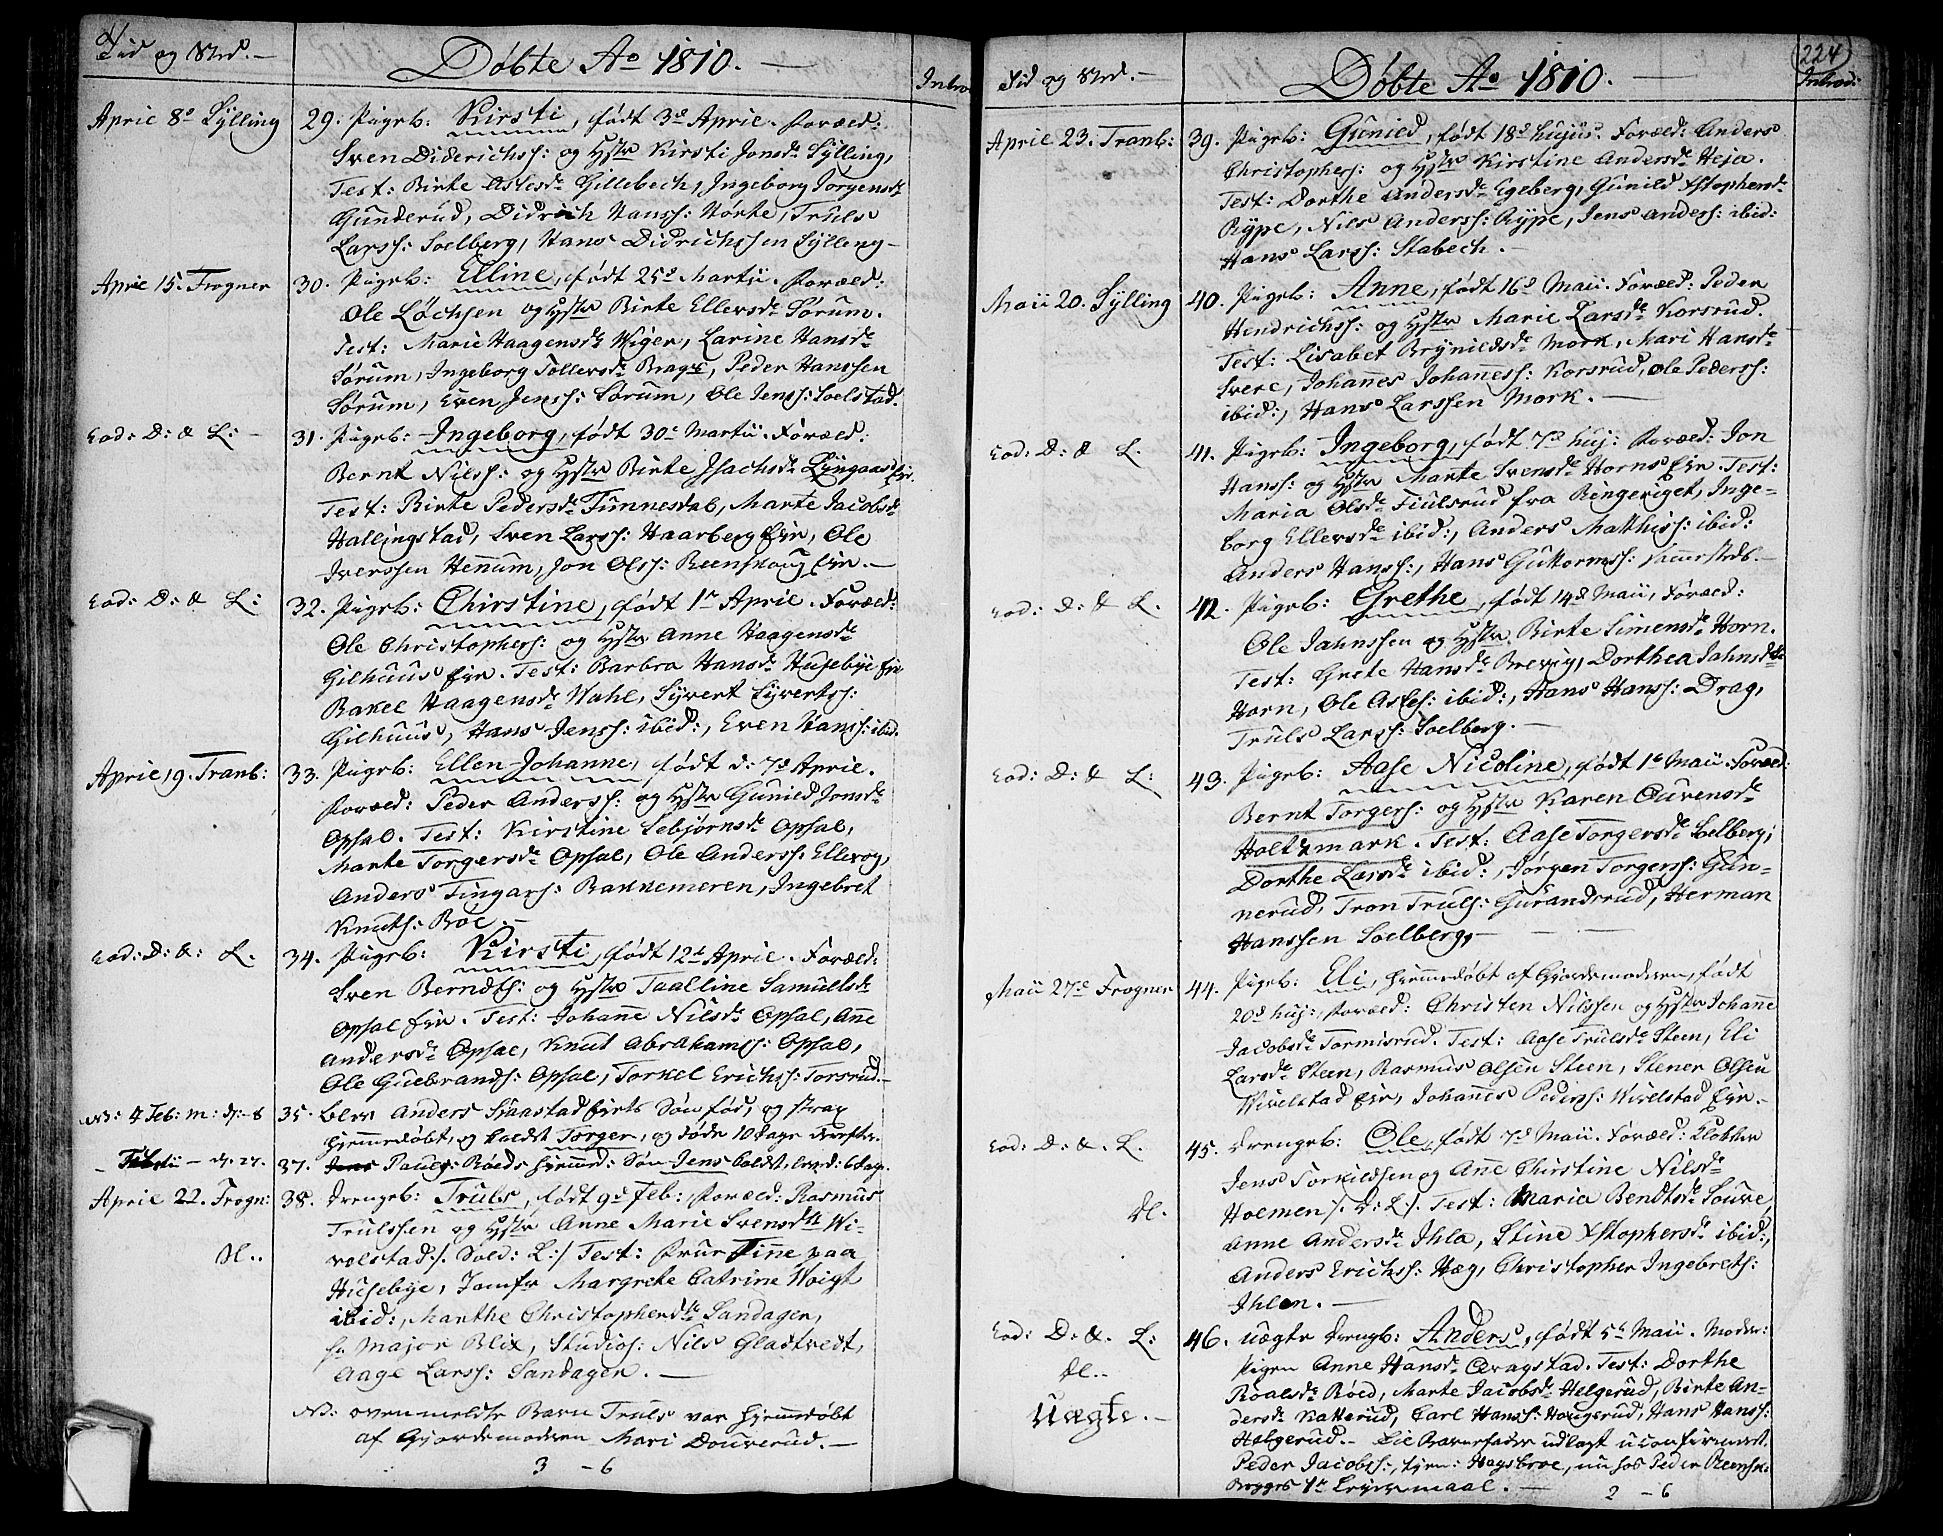 Tid og Sted.—
Døbte Ao 1810. —
Introd
April 8d Sylling 29. Pigeb: Kirsti, født 3d April. Foræld:
Sven Diderichss: og Hstr Kirsti Jonsdr Sylling,
Test: Birte Aslesdr Gillebech, Ingeborg Jørgensdr
Gunderud, Didrich Hanss: Hørte, Truls
Larss: Soelberg, Hans Didrichssen Sylling—
April 15. Frogner 30. Pigeb: Elline, født 25d Martii. Foræld:
Ole Løchsen og Hstr Birte Ellevsdr Sørum.
Test: Marie Haagensdr Wiger, Larine Hansdr
Sørum, Ingeborg Tollevsdr Brage, Peder Hanssen
Sørum, Even Jenss: Sørum, Ole Jenss: Soelstad.
Eod: D: & L: — 31. Pigeb: Ingeborg, født 30d Martii. Foræld:
Bernt Nilss: og Hstr Birte Isachsdr Lyngaas Eir.
Test: Birte Pedersdr Tumnesdal, Marte Jacobsdr
Hallingstad, Sven Larss: Haarberg Eir, Ole
Iverssen Henum, Jon Olss: Reenskoug Eir.—
Eod: D: & L: 32. Pigeb: Christine, født 1ste April. Foræld:
Ole Christophers: og Hstr Anne Haagensdr
Gilhuus Eir. Test: Barbro Hansdr Husebye Eir
Rakel Haagensdr Wahl, Syvert Syverts:
Gilhuus, Hans Jenss: ibid:, Even Hanss: ibid.
April 19. Tranb: 33. Pigeb: Ellen Johanne, født d: 7d April.
Foræld: Peder Anderss: og Hstr Gunild Jonsdr
Opsal. Test: Kirstine Sebjørnsdr Opsal,
Marte Torgersdr Opsal, Ole Anderss: Ellevog,
Anders Fingars: Bakkemeren, Ingebret
Knuts: Boe.—
Eod: D: &: L. 34. Pigeb: Kirsti, født 12d April. Foræld:
Sven Berndts: og Hstr Taalline Samuelsdr
Opsal Eir. Test: Johanne Nilsdr Opsal, Anne
Andersdr Opsal, Knut Abrahamss: Opsal,
Ole Gulbrands: Opsal, Torkel Erichss: Torsrud.—
NB: 4 Feb: 35. blev Anders Skaastad Eiets Søn fød, og strax
hjemmedøbt, og kaldet Torger, og døde 10 dage derefter.
37. Povels Røeds hjemd: Søn Jens kaldt, levd: 6 dag.
April 22. Frogn: 38. Drengeb: Truls, født 9d Feb: Foræld: Rasmus
Trulssen og Hstr Anne Marie Svensdtr Wi-
velstad /: Sold: L:/ Test: Frue Tinne paa
Husebye, Jomfr Margrete Catrine Woigt
ibid:, Marthe Christophersdtr Sandager,
Hr Major Blix, Studios: Nils Gladtvedt,
Aage Larss: Sandager. —
NB: ovenmeldte Barn Truls var hjemmedøbt
af Gjordemoderen Mari Douverud.—
3 — 6
224
Tid og Sted.—
Døbte Ao 1810. —
Introd:
April 23. Tranb: 39. Pigeb: Gunild, født 18d hujus. Foræld: Anders
Christophers: og Hstr Kirstine Andersdr Heja.
Test: Dorthe Andersdr Egeberg, Gunild Xstophersdr
Rype, Nils Anderss: Rype, Jens Anders: ibid:
Hans Larss: Stabech. —
Maii 20. Sylling 40. Pigeb: Anne, født 16d Maii. Foræld: Peder
Hendrichss: og Hstr Marie Larsdr Korsrud.
Test: Lisabet Brynildsdr Mork, Mari Hansdr
Svere, Johannes Johaness: Korsrud, Ole Pederss:
ibid:, Hans Larssen Mork. —
Eod: D: & L. 41. Pigeb: Ingeborg, født 7d huj: Foræld: Jon
Hanss: og Hstr Marte Svensdr Horns Eir. Test:
Maria Olsdr Fiulsrud fra Ringeriget, Inge-
borg Ellevsdr ibid:, Anders Matthiss: ibid:
Anders Hanss:, Hans Guttorms:
Eod: D: & L. 42. Pigeb: Grethe, født 14d Maii, Foræld:
Ole Jahnssen og Hstr Birte Simensdr Horn.
Test: Grete Hansdr Brevig, Dorthea Jahnsdtr
Horn, Ole Asles: ibid:, Hans Hanss: Drag,
Truls Larss: Soelberg. —
Eod: D: & L: 43. Pigeb: Aase Nicoline, født 1d Maii. Foræld:
Bernt Torgers: og Hstr Karen Ouvensdr
Holtzmark. Test: Aase Torgersdr Solberg,
Dorthe Larsdr ibid:, Jørgen Torgers: Gun-
nerud, Tron Truls: Gurandsrud, Herman
Hanssen Soelberg, —
Maii 27d Frogner 44. Pigeb: Eli, hjemedøbt af Gjordemoderen, født
20d huj: Foræld: Christen Nilssen og Hstr Johanne
Jacobsdr Tormisrud. Test: Aase Trulsdr Steen, Eli
Larsdr Steen, Rasmus Olsen Steen, Stener Olsen
Wivelstad Eir, Johannes Pederss: Wivelstad Eir.—
Eod: D: &. L. 45. Drengeb: Ole, født 7d Maii. Foræld: Klokker
Jens Torkildsen og Anne Christine Nilsdr
Dl. Hoemen /: D: L:/. Test: Maria Bendtsdr Louve,
Anne Andersdr Ihla, Stine Xstophersdr ibid:,
Anders Erichss: Hæg, Christopher Ingebrets:
Ihlen. —
Eod: D: &. L: 46. uægte Drengb: Anders, født 5d Maii. Moder:
Dl.. Pigen Anne Hansdr Qvagstad. Test: Dorthe
Roalsdr Røed, Marte Jacobsdr Helgerud, Birte An-
Uægte.— dersdr Katterud, Carl Hanss: Hougerud, Hans Hanss:
Helgerud.— Til Barnefader udlagt uconfirmert.
Peder Jacobss:, tjen: Høysbroe, nu hos Peder Reensk:
Brygges 1te Leiermaal. —
2 — 6